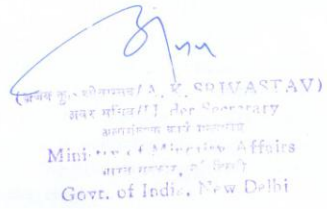 (अजय कु. श्रीवास्तव/A. K. SRIVASTAV)
अवर सचिव/Under Secretary
अल्पसंख्यक कार्य मंत्रालय
Ministry of Minority Affairs
भारत सरकार, नई दिल्ली
Govt. of India, New Delhi